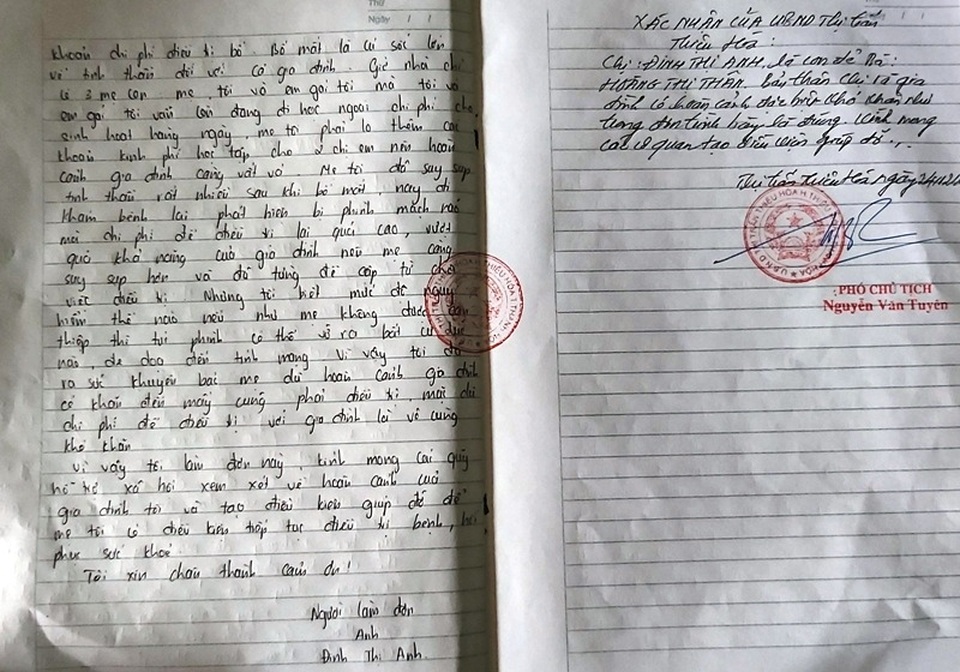 Thứ
Ngày / /
khoản chi phí điều trị bố. Bố mất là cú sốc lớn
về tinh thần đối với cả gia đình. Giờ nhà chỉ
có 3 mẹ con mẹ tôi và em gái tôi mà tôi và
em gái tôi vẫn còn đang đi học ngoài chi phí cho
sinh hoạt hàng ngày, mẹ tôi phải lo thêm các
khoản kinh phí học tập cho 2 chị em nên hoàn
cảnh gia đình càng vất vả. Mẹ tôi đã suy sụp
tinh thần rất nhiều sau khi bố mất, nay đi
khám bệnh lại phát hiện bị phình mạch não
mà chi phí để điều trị lại quá cao, vượt
quá khả năng của gia đình nên mẹ càng
suy sụp hơn và đã từng đề cập từ chối
việc điều trị. Nhưng tôi biết mức độ nguy
hiểm thế nào nếu như mẹ không được can
thiệp thì túi phình có thể vỡ ra bất cứ lúc
nào, đe dọa đến tính mạng. Vì vậy tôi đã
ra sức khuyên bảo mẹ dù hoàn cảnh gia đình
có khăn đến mấy cũng phải điều trị, mặc dù
chi phí để điều trị với gia đình là vô cùng
khó khăn
Vì vậy tôi làm đơn này, kính mong các quý
hỗ trợ xã hội xem xét về hoàn cảnh của
gia đình tôi và tạo điều kiện giúp đỡ để
mẹ tôi có điều kiện tiếp tục điều trị bệnh, hồi
phục sức khoẻ
Tôi xin chân thành cảm ơn!
Người làm đơn
Anh
Đinh Thị Anh
XÁC NHẬN CỦA UBND Thị trấn
Thiệu Hoá:
Chị: ĐINH THỊ ANH là con đẻ Bà:
HOÀNG THỊ THÂN. bản thân Chị và gia
đình có hoàn cảnh đặc biệt khó khăn như
trong đơn trình bày là đúng. Kính mong
các cơ quan tạo điều kiện giúp đỡ./.
Thị trấn Thiệu Hoá Ngày 24/12/2
PHÓ CHỦ TỊCH
Nguyễn Văn Tuyên